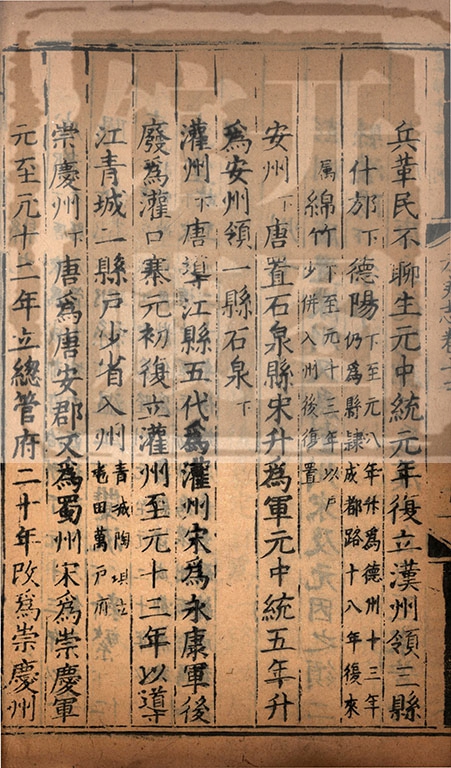 兵革民不聊生元中統元年復立漢州領三縣
什邡下德陽下至元八年休爲德州十三年仍爲縣隸成都路十八年後來
屬綿竹下至元十三年以戶少併入州後復置
安州下唐置石泉縣宋升爲軍元中統五年升
爲安州領一縣石泉下
灌州下唐導江縣五代爲灌州宋爲永康軍後
廢爲灌口寨元初復立灌州至元十三年以導
江青城二縣戶少省入州青城陶垻立屯田萬戶府
崇慶州下唐爲唐安郡又爲蜀州宋爲崇慶軍
元至元十二年立總管府二十年改爲崇慶州